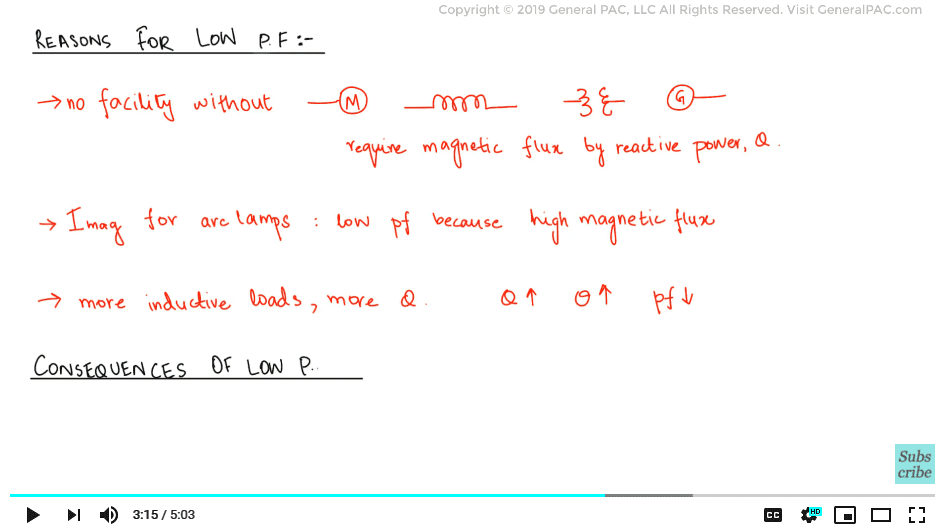 Copyright © 2019 General PAC, LLC All Rights Reserved. Visit GeneralPAC.com
REASONS FOR LOW P.F:-
→ no facility without M G
require magnetic flux by reactive power, Q.
→ Imag for arc lamps : low pf because high magnetic flux
→ more inductive loads, more Q. Q↑ θ↑ pf↓
CONSEQUENCES OF LOW P.
Subs
cribe
3:15 / 5:03 CC HD